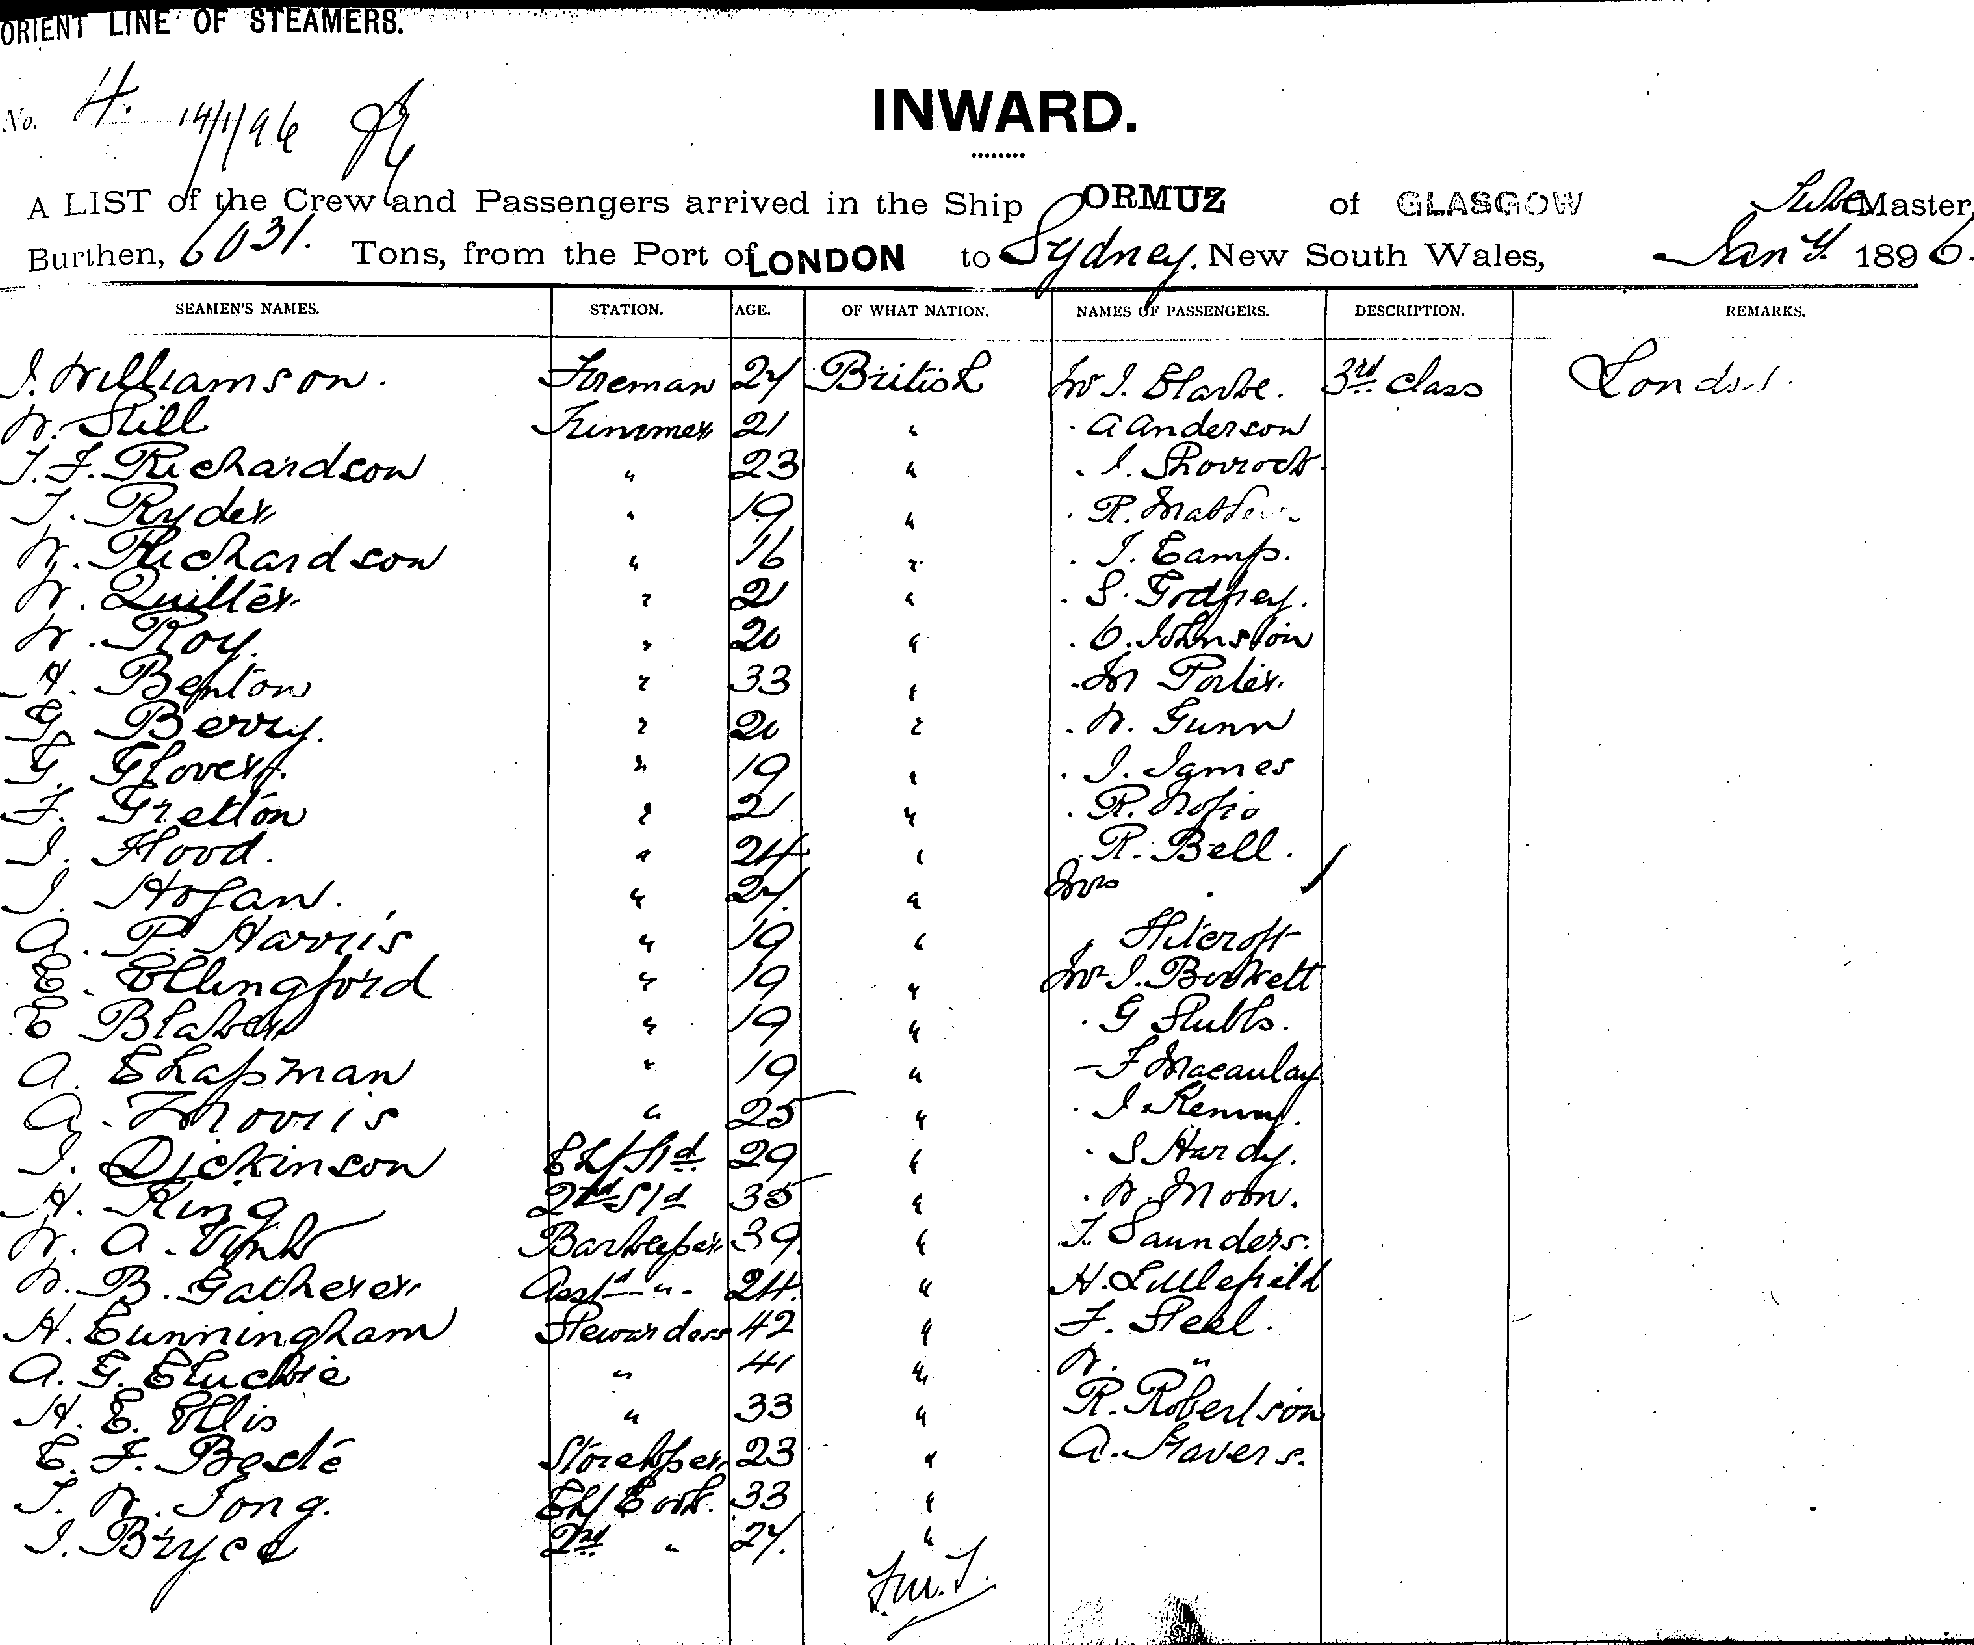 ORIENT LINE OF STEAMERS.
No. 4. 14/1/96
INWARD.
A LIST of the Crew and Passengers arrived in the Ship ORMUZ of GLASGOW Master,
Burthen, 6031. Tons, from the Port of LONDON to Sydney. New South Wales, Jany. 1896.
SEAMEN'S NAMES. STATION. AGE. OF WHAT NATION. NAMES OF PASSENGERS. DESCRIPTION. REMARKS.
J. Williamson. Fireman 27 British Mr J. Clarke. 3rd class London
W. Still Trimmer 21 " . A Anderson
T. F. Richardson " 23 " . J.
T. Ryder " 19 " . R.
W. Richardson " 16 " . J. Camp.
W. Quilter " 21 " . S. Godfrey.
W. Roy. " 20 " . C. Johnston
H. Benton " 33 " . M Porter.
G. Berry. " 20 " . W. Gunn
G. Glover. " 19 " . J. James
F. Gretton " 21 " . R.
J. Hood. " 24 " . R. Bell.
J. Hogan. " 27. " Mrs .
A. P. Harris " 19 "
E. Ellingford " 19 " Mr J. Birkett
E Blaker " 19 " . G Stubbs.
A. Chapman " 19 " - F Macaulay
A. Morris " 25 " . J Kenny.
J. Dickinson Chf Std 29 " . S Hardy.
H. King 2nd Std 35 " . W. Moon.
W. A. Barkeeper 39 " T. Saunders.
W. B. Gatherer Asst " 24. " H. Littlefield
H. Cunningham Stewardess 42 " F. Steel.
A. G. " 41 " W. "
H. E. Ellis " 33 " R. Robertson
E. F. Storekper 23 " A. Favers.
T. W. Tong. Chf Cook. 33 "
J. Bryce 2nd " 27. "